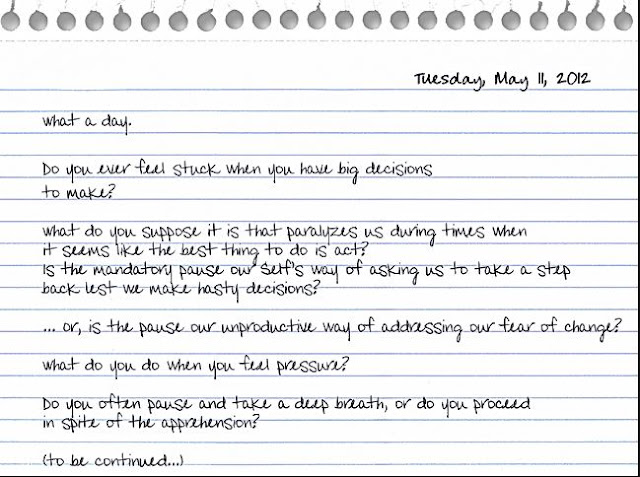 Tuesday, May 11, 2012
what a day.
Do you ever feel stuck when you have big decisions
to make?
what do you suppose it is that paralyzes us during times when
it seems like the best thing to do is act?
Is the mandatory pause our Self's way of asking us to take a step
back lest we make hasty decisions?
... or, is the pause our unproductive way of addressing our fear of change?
what do you do when you feel pressure?
Do you often pause and take a deep breath, or do you proceed
in spite of the apprehension?
(to be continued...)